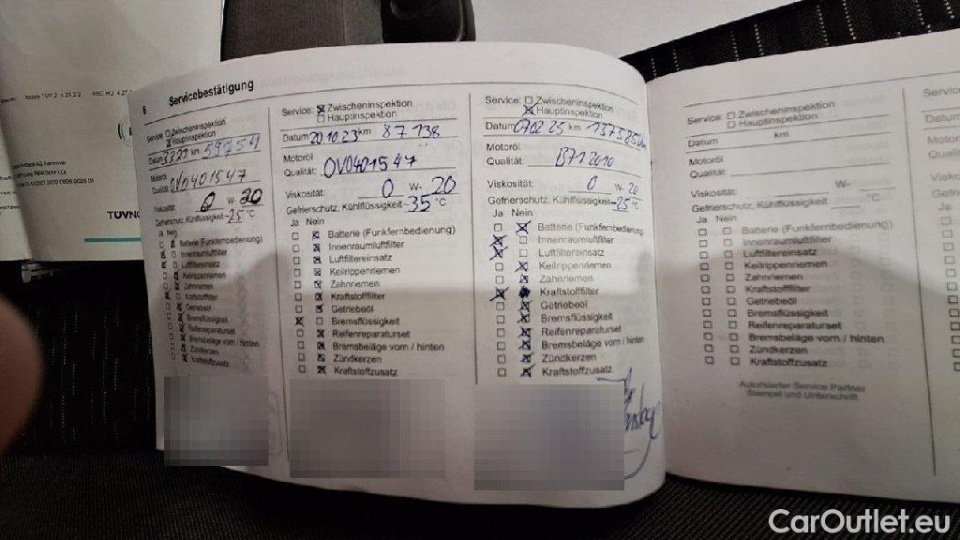 6 Servicebestätigung
Service: Zwischeninspektion
Hauptinspektion
Datum km 59754
Motoröl
Qualität: OV0401547
Viskosität: 0 W- 20
Gefrierschutz, Kühlflüssigkeit -25 °C
Ja Nein
Batterie (Funkfernbedienung)
Innenraumluftfilter
Luftfiltereinsatz
Keilrippenriemen
Zahnriemen
Kraftstofffilter
Getriebeöl
Bremsflüssigkeit
Reifenreparaturset
Bremsbeläge vorn / hinten
Zündkerzen
Kraftstoffzusatz
Service: Zwischeninspektion
Hauptinspektion
Datum 20 10 23 km 87 138
Motoröl
Qualität: OV0401547
Viskosität: 0 W- 20
Gefrierschutz, Kühlflüssigkeit -35 °C
Ja Nein
Batterie (Funkfernbedienung)
Innenraumluftfilter
Luftfiltereinsatz
Keilrippenriemen
Zahnriemen
Kraftstofffilter
Getriebeöl
Bremsflüssigkeit
Reifenreparaturset
Bremsbeläge vorn / hinten
Zündkerzen
Kraftstoffzusatz
Service: Zwischeninspektion
Hauptinspektion
Datum 07 02 25 km
Motoröl
Qualität: B71 2010
Viskosität: 0 W- 20
Gefrierschutz, Kühlflüssigkeit -25 °C
Ja Nein
Batterie (Funkfernbedienung)
Innenraumluftfilter
Luftfiltereinsatz
Keilrippenriemen
Zahnriemen
Kraftstofffilter
Getriebeöl
Bremsflüssigkeit
Reifenreparaturset
Bremsbeläge vorn / hinten
Zündkerzen
Kraftstoffzusatz
Service: Zwischeninspektion
Hauptinspektion
Datum km
Motoröl
Qualität:
Viskosität: W-
Gefrierschutz, Kühlflüssigkeit °C
Ja Nein
Batterie (Funkfernbedienung)
Innenraumluftfilter
Luftfiltereinsatz
Keilrippenriemen
Zahnriemen
Kraftstofffilter
Getriebeöl
Bremsflüssigkeit
Reifenreparaturset
Bremsbeläge vorn / hinten
Zündkerzen
Kraftstoffzusatz
Autorisierter Service Partner
Stempel und Unterschrift
CarOutlet.eu